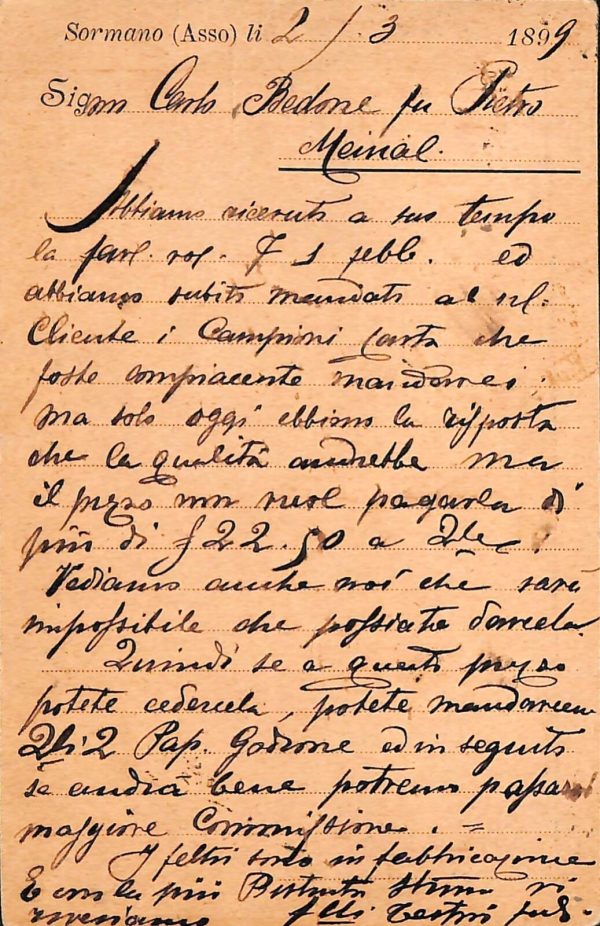 Sormano (Asso) li 2/3 1899
Signor Carlo Bedone fu Pietro
Meinal.
Abbiamo ricevuto a suo tempo
la 1 febb. ed
abbiamo subito mandato al
Cliente i Campioni Carta che
foste compiacente mandarci.
ma solo oggi ebbimo la risposta
che la qualità andrebbe ma
il prezzo non vuol pagarla di
più di £ 22.50 a Qle.
Vediamo anche noi che sarà
impossibile che possiate darcela.
Quindi se a questo prezzo
potete cedercela, potete mandarcene
Qli 2 Pap. Godrone ed in seguito
se andrà bene potremo passarvi
maggiore Commissione. =
I feltri sono in fabbricazione
E con la più Distinta Stima vi
riveriamo flli Testori